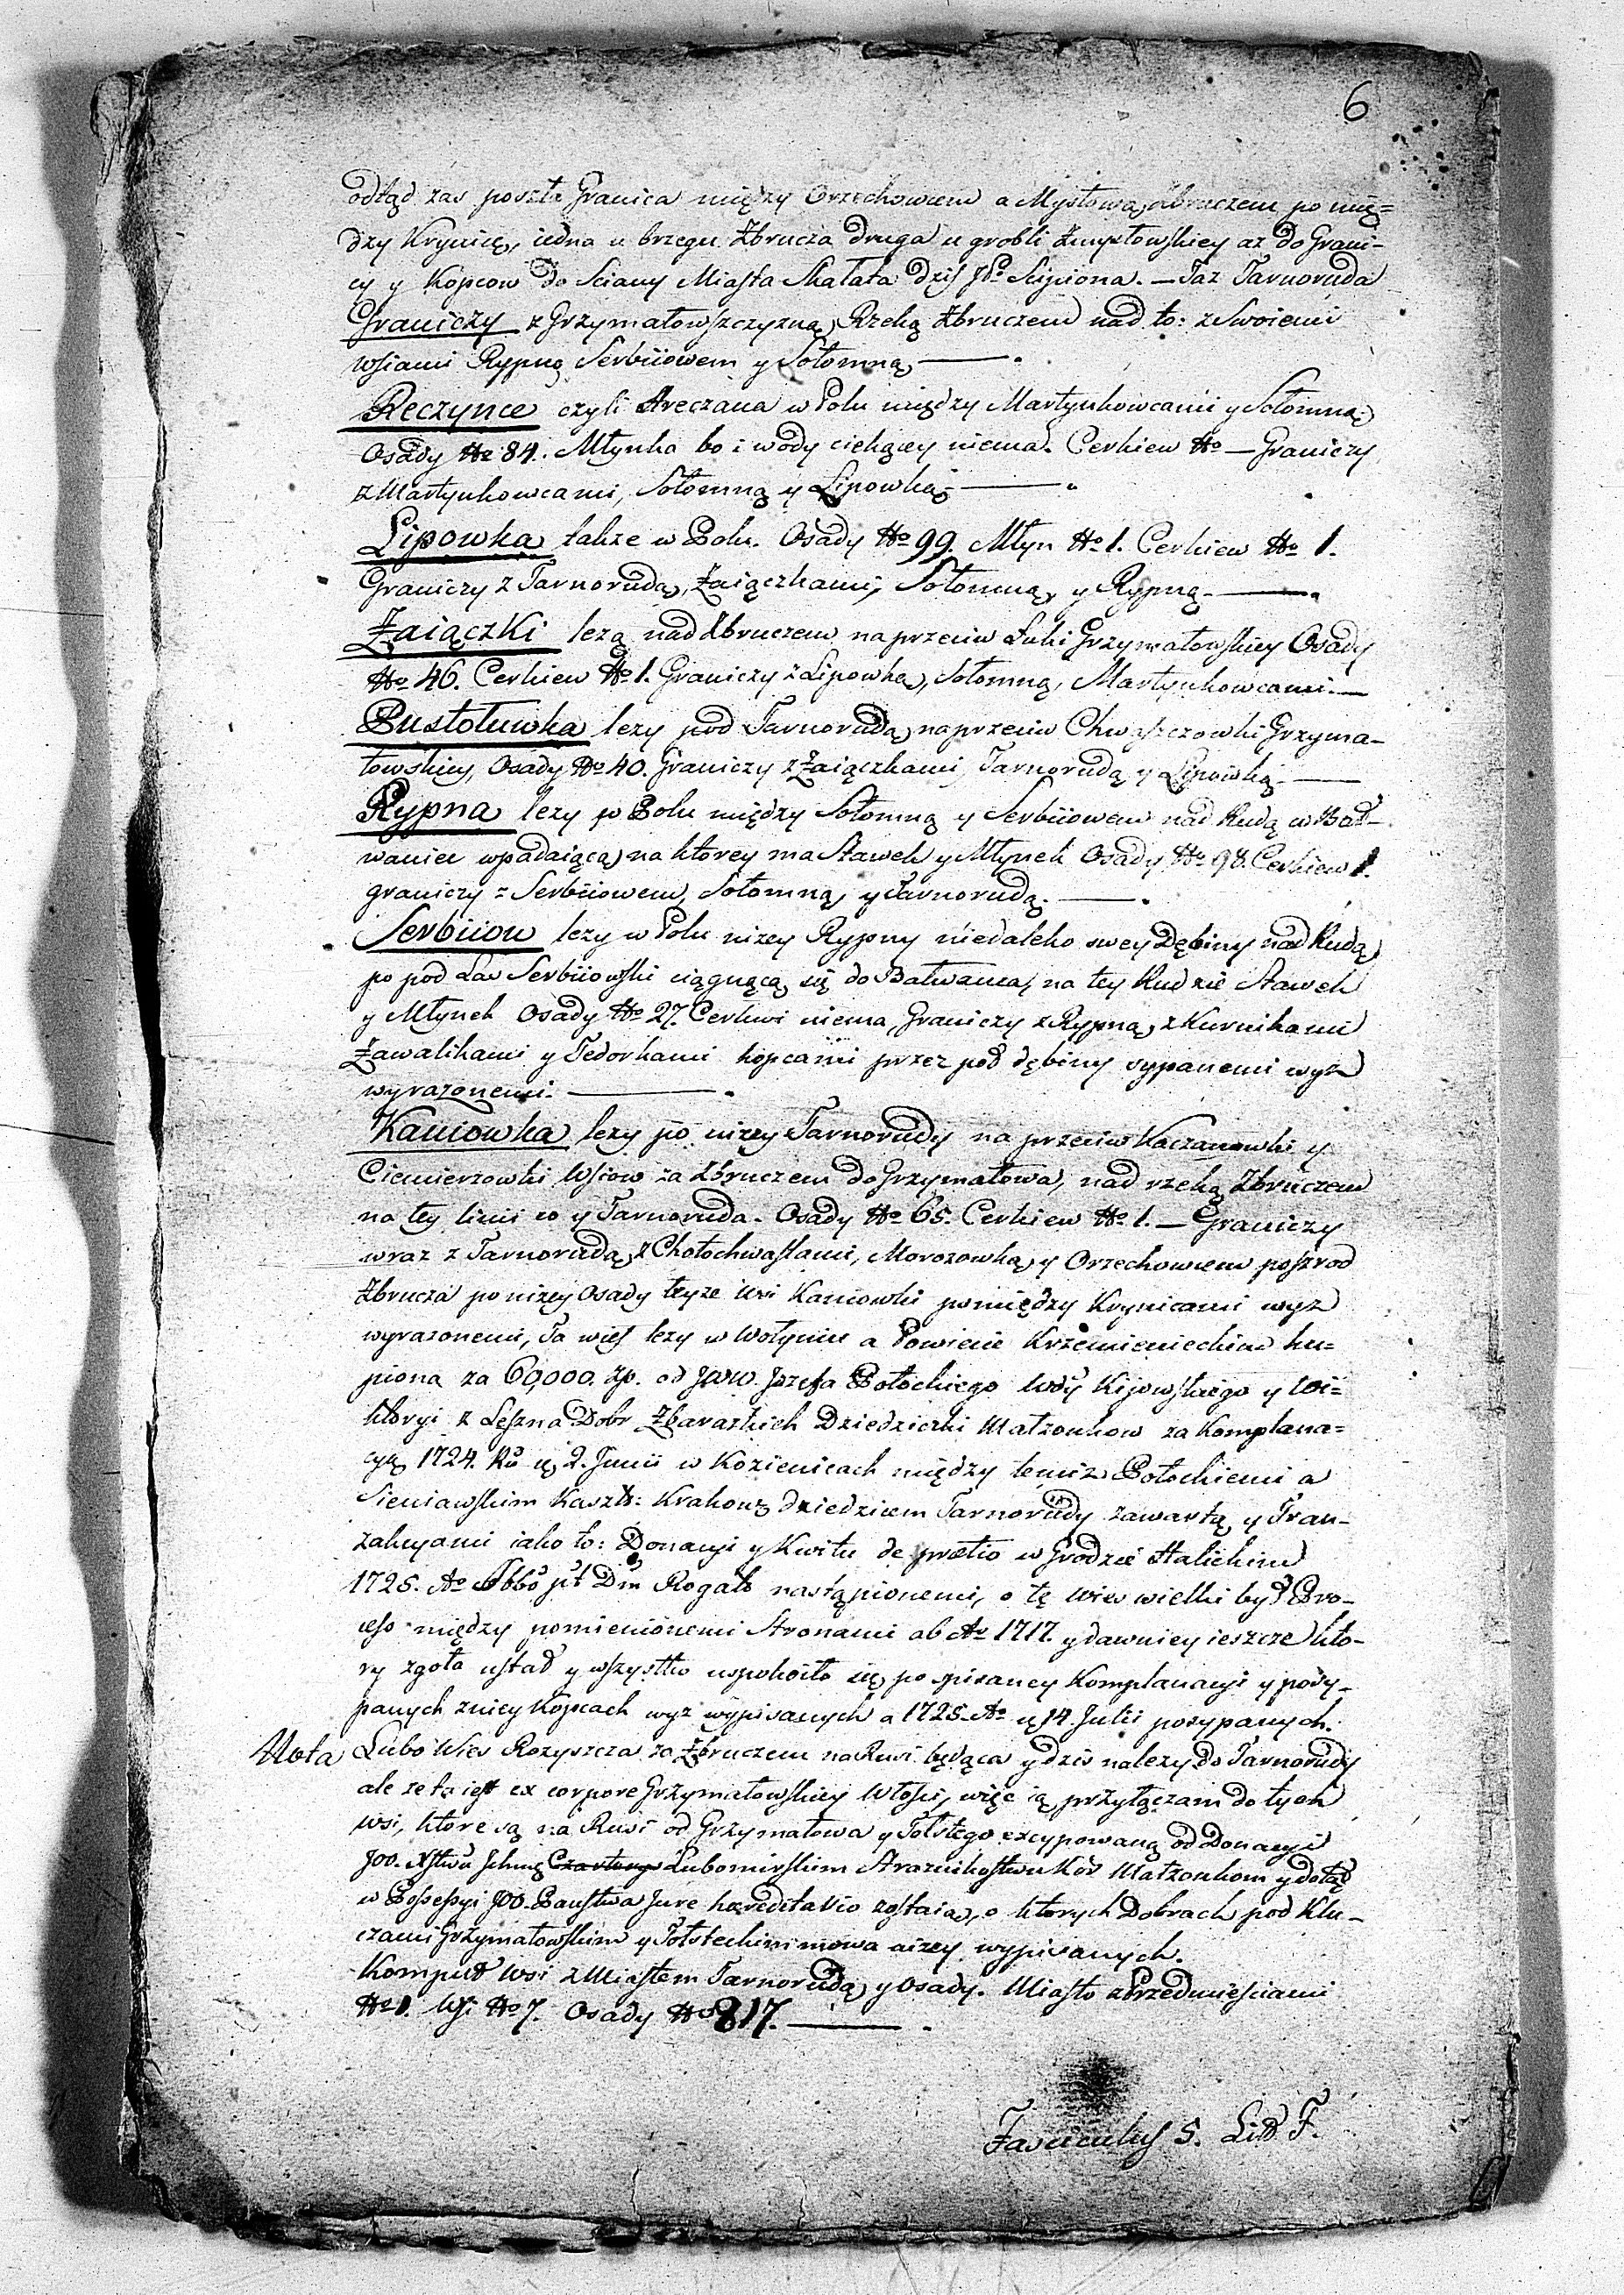 6
odtąd zas poszła Granica między Orzechowem a Mysłową, Zbruczem po mię=
dzy Krynicę, iedna u brzegu Zbrucza druga u grobli Zmysłowskiey az do Grani-
cy y Kopcow do Sciany Miasta Skałata dzis JP. Scipiona. — Taz Tarnoruda
Graniczy z Grzymałowszczyzną, Rzeką Zbruczem nad to: z Swoiemi
wsiami Rypną Serbiiowem y Sołomną, — .
Reczynce czyli Hreczana w Polu między Martynkowcami y Sołomną
Osady No 84. Młynka bo i wody ciekącey niema. Cerkiew No — Graniczy
z Martynkowcami, Sołomną y Lipowką — .
Lipowka takze w Polu. Osady No 99. Młyn No 1. Cerkiew No 1.
Graniczy z Tarnorudą, Zaiączkami, Sołomną, y Rypną. — .
Zaiączki lezą nad Zbruczem naprzeciw Łuki Grzymałowskiey Osady
No 46. Cerkiew No 1. Graniczy z Lipowką, Sołomną, Martynkowcami. —
Pustołuwka lezy pod Tarnorudą, naprzeciw Chwaszczowki Grzyma-
łowskiey, Osady No 40. Graniczy z Zaiączkami, Tarnorudą y Lipowką. —
Rypna lezy w Polu między Sołomną y Serbiiowem nad Rudą w Bał-
waniec wpadaiącą, na ktorey ma Stawek y Młynek Osady No 98. Cerkiew 1.
graniczy z Serbiiowem, Sołomną, y Tarnorudą. — .
Serbiiow lezy w Polu nizey Rypny niedaleko swey Dębiny nad Rudą,
po pod Las Serbiiowski ciągnącą się do Bałwanca, na tey Rudzie Stawek
y Młynek Osady No 27. Cerkwi niema, Graniczy z Rypną, z Kurnikami
Zawalikami y Fedorkami kopcami przez pod dębiny sypanemi wyz
wyrazonemi. — .
Kaniowka lezy po nizey Tarnorudy na przeciw Kaczanowki y
Ciemierzowki Wsiow za Zbruczem do Grzymałowa, nad rzeką Zbruczem
na tey linii co y Tarnoruda. Osady No 65. Cerkiew No 1. — Graniczy
wraz z Tarnorudą, z Chołochwastami, Morozowką, y Orzechowem poszrod
Zbrucza ponizey Osady teyze wsi Kaniowki pomiędzy Krynicami wyz
wyrazonemi, Ta wies lezy w Wołyniu a Powiecie Krzemienieckim ku=
piona za 60,000. zp. od JWW. Jozefa Potockiego Wdy Kijowskiego y Wi=
ktoryi z Leszna Dobr Zbarazkich Dziedziczki Małzonkow za Komplana=
cyą 1724. Ru 2. Junii w Kozienicach między temiz Potockiemi a
Sieniawskim Kaszt: Krakows dziedzicem Tarnorudy zawartą, y Tran-
zakcyami iako to: Donacyi y Kwitu de pretio w Grodzie Halickim
1725. Ao Sabbo pt Dm Rogate nastąpionemi, o tę wies wielki był Pro-
cess między pomienionemi Stronami ab Ao 1717. y dawniey ieszcze kto-
ry zgoła ustał y wszystko uspokoiło się po spisaney Komplanacyi y posy-
panych z niey Kopcach wyz wypisanych a 1725. Ao 14. Julii posypanych.
Nota Lubo Wies Rozyszcza za Zbruczem na Rusi będąca y dzis nalezy do Tarnorudy
ale ze ta iest ex corpore Grzymałowskiey Włosci, więc ią przyłączam do tych
wsi, ktore są na Rusi od Grzymałowa y Tołstego excypowaną od Donacyi
JOO. Xstwu Ichmę Czartorys Lubomirskim Straznikostwu Kor Małzonkom y dotąd
w Possessyi JOO. Panstwa Jure hæreditario zostaiąc, o ktorych Dobrach pod Klu-
czami Grzymałowskim y Tołsteckim mowa nizey wypisanych.
Komput wsi z Miastem Tarnorudą y Osady. Miasto z Przedmiesciami
No 1. Wsi No 7. Osady No 817. — .
Fasciculus 5. Litt F.